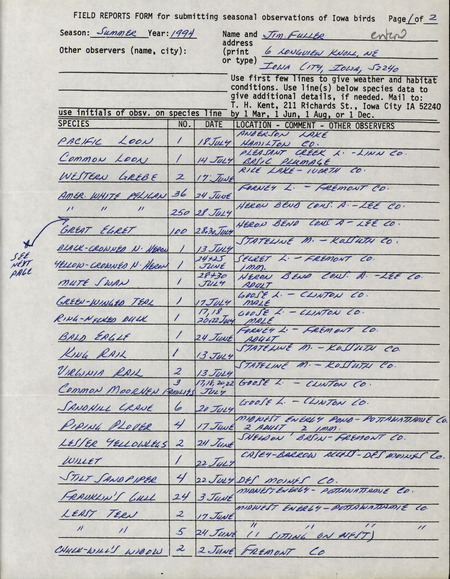 FIELD REPORTS FORM for submitting seasonal observations of Iowa birds Page 1 of 2
Season: SUMMER Year: 1994 Name and JIM FULLER entered
address
Other observers (name, city): (print 6 LONGVIEW KNOLL, NE
or type) IOWA CITY, IOWA, 52240
Use first few lines to give weather and habitat
conditions. Use line(s) below species data to
give additional details, if needed. Mail to:
T. H. Kent, 211 Richards St., Iowa City IA 52240
use initials of obsv. on species line by 1 Mar, 1 Jun, 1 Aug, or 1 Dec.
SPECIES NO. DATE LOCATION - COMMENT - OTHER OBSERVERS
ANDERSON LAKE
PACIFIC LOON 1 18 JULY HAMILTON CO.
PLEASANT CREEK L. - LINN CO
COMMON LOON 1 14 JULY BASIC PLUMAGE
RICE LAKE - WORTH CO.
WESTERN GREBE 2 17 JUNE
FORNEY L. - FREMONT CO.
AMER. WHITE PELICAN 36 24 JUNE
HERON BEND CONS. A - LEE CO.
" " " 250 28 JULY
HERON BEND CONS A - LEE CO.
GREAT EGRET 100 28+30 JULY
STATELINE M. - KOSSUTH CO.
BLACK-CROWNED N. HERON 1 13 JULY
SEE NEXT PAGE
24+25 SECRET L. - FREMONT CO.
YELLOW-CROWNED N. HERON 1 JUNE 1 MM.
28+30 HERON BEND CONS. A. - LEE CO.
MUTE SWAN 1 JULY ADULT
GOOSE L. - CLINTON CO.
GREEN-WINGED TEAL 1 17 JULY MALE
17, 18 GOOSE L. - CLINTON CO.
RING-NECKED DUCK 1 20+22 JULY MALE
FORNEY L. - FREMONT CO.
BALD EAGLE 1 24 JUNE ADULT
STATELINE M. - KOSSUTH CO.
KING RAIL 1 13 JULY
STATELINE M. - KOSSUTH CO.
VIRGINIA RAIL 2 13 JULY
3 17, 18, 20, 22 GOOSE L. - CLINTON CO.
COMMON MOORHEN FAMILIES JULY
GOOSE L. - CLINTON CO.
SANDHILL CRANE 6 20 JULY
MIDWEST ENERGY POND - POTTAWATTAMIE CO.
PIPING PLOVER 4 17 JUNE 2 ADULT 2 IMM.
SHELDON' BASIN - FREMONT CO.
LESSER YELLOWLEGS 2 24 JUNE
CASEY-BARROW ACCESS - DES MOINES CO.
WILLET 1 22 JULY
STILT SANDPIPER 4 22 JULY DES MOINES CO.
MIDWEST ENERGY - POTTAWATTAMIE CO.
FRANKLIN'S GULL 24 3 JUNE
MIDWEST ENERGY - POTTAWATTAMIE CO
LEAST TERN 2 17 JUNE
" " "
" " 5 24 JUNE (1 SITTING ON NEST)
CHUCK-WILL'S WIDOW 2 2 JUNE FREMONT CO